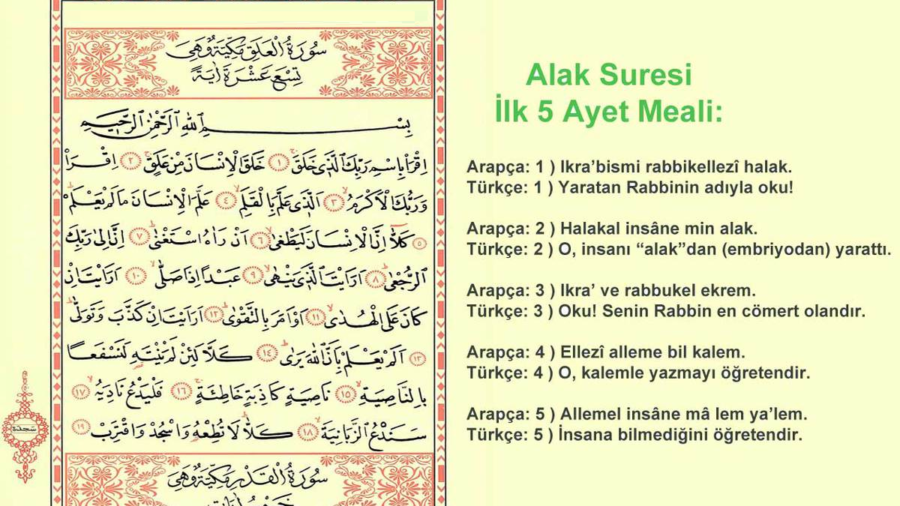 سُورَةُ الْعَلَقِ مَكِّيَّةٌ وَهِيَ
تِسْعَ عَشْرَةَ اٰيَةً
بِسْمِ اللّٰهِ الرَّحْمٰنِ الرَّحٖيمِ
اِقْرَأْ بِاسْمِ رَبِّكَ الَّذٖي خَلَقَ ﴿١﴾ خَلَقَ الْاِنْسَانَ مِنْ عَلَقٍ ﴿٢﴾ اِقْرَأْ
وَرَبُّكَ الْاَكْرَمُ ﴿٣﴾ اَلَّذٖي عَلَّمَ بِالْقَلَمِ ﴿٤﴾ عَلَّمَ الْاِنْسَانَ مَا لَمْ يَعْلَمْ
﴿٥﴾ كَلَّٓا اِنَّ الْاِنْسَانَ لَيَطْغٰى ﴿٦﴾ اَنْ رَاٰهُ اسْتَغْنٰى ﴿٧﴾ اِنَّ اِلٰى رَبِّكَ
الرُّجْعٰى ﴿٨﴾ اَرَاَيْتَ الَّذٖي يَنْهٰى ﴿٩﴾ عَبْدًا اِذَا صَلّٰى ﴿١٠﴾ اَرَاَيْتَ اِنْ
كَانَ عَلَى الْهُدٰى ﴿١١﴾ اَوْ اَمَرَ بِالتَّقْوٰى ﴿١٢﴾ اَرَاَيْتَ اِنْ كَذَّبَ وَتَوَلّٰى
﴿١٣﴾ اَلَمْ يَعْلَمْ بِاَنَّ اللّٰهَ يَرٰى ﴿١٤﴾ كَلَّا لَئِنْ لَمْ يَنْتَهِ لَنَسْفَعًا
بِالنَّاصِيَةِ ﴿١٥﴾ نَاصِيَةٍ كَاذِبَةٍ خَاطِئَةٍ ﴿١٦﴾ فَلْيَدْعُ نَادِيَهُ ﴿١٧﴾
سَنَدْعُ الزَّبَانِيَةَ ﴿١٨﴾ كَلَّا لَا تُطِعْهُ وَاسْجُدْ وَاقْتَرِبْ ﴿١٩﴾
سَجْدَة
سُورَةُ الْقَدْرِ مَكِّيَّةٌ وَهِيَ
Alak Suresi
İlk 5 Ayet Meali:
Arapça: 1 ) Ikra’bismi rabbikellezî halak.
Türkçe: 1 ) Yaratan Rabbinin adıyla oku!
Arapça: 2 ) Halakal insâne min alak.
Türkçe: 2 ) O, insanı “alak”dan (embriyodan) yarattı.
Arapça: 3 ) Ikra’ ve rabbukel ekrem.
Türkçe: 3 ) Oku! Senin Rabbin en cömert olandır.
Arapça: 4 ) Ellezî alleme bil kalem.
Türkçe: 4 ) O, kalemle yazmayı öğretendir.
Arapça: 5 ) Allemel insâne mâ lem ya’lem.
Türkçe: 5 ) İnsana bilmediğini öğretendir.